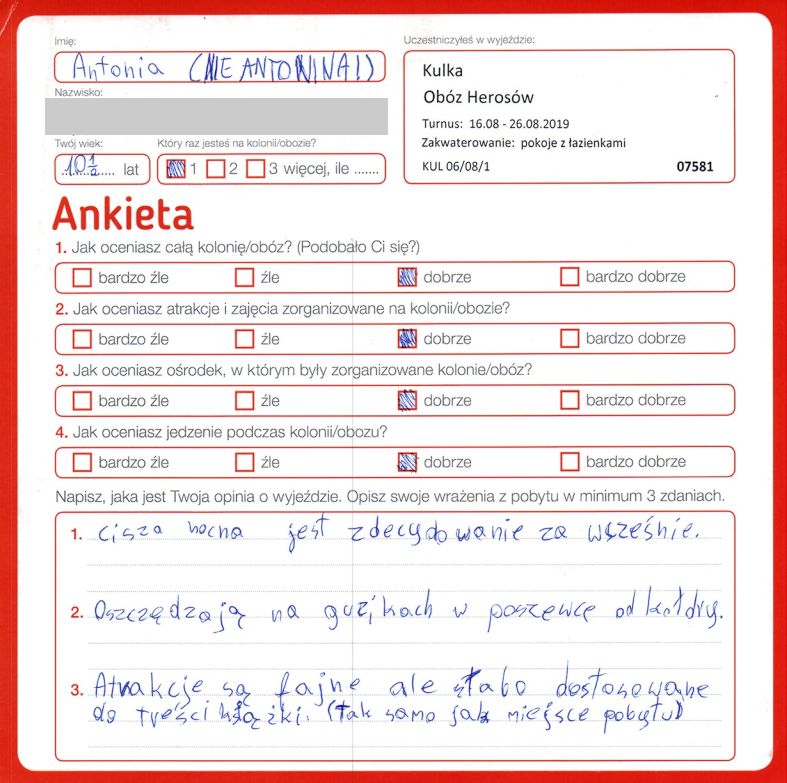 Imię:
Antonia (NIE ANTONINA!)
Nazwisko:
Twój wiek:
10 1/2 lat
Który raz jesteś na kolonii/obozie?
1 2 3 więcej, ile .......
Uczestniczyłeś w wyjeździe:
Kulka
Obóz Herosów
Turnus: 16.08 - 26.08.2019
Zakwaterowanie: pokoje z łazienkami
KUL 06/08/1 07581
Ankieta
1. Jak oceniasz całą kolonię/obóz? (Podobało Ci się?)
bardzo źle źle dobrze bardzo dobrze
2. Jak oceniasz atrakcje i zajęcia zorganizowane na kolonii/obozie?
bardzo źle źle dobrze bardzo dobrze
3. Jak oceniasz ośrodek, w którym były zorganizowane kolonie/obóz?
bardzo źle źle dobrze bardzo dobrze
4. Jak oceniasz jedzenie podczas kolonii/obozu?
bardzo źle źle dobrze bardzo dobrze
Napisz, jaka jest Twoja opinia o wyjeździe. Opisz swoje wrażenia z pobytu w minimum 3 zdaniach.
1. Cisza nocna jest zdecydowanie za wcześnie.
2. Oszczędzają na guzikach w poszewce od kołdry.
3. Atrakcje są fajne ale słabo dostosowane
do treści książki. (Tak samo jak miejsce pobytu)